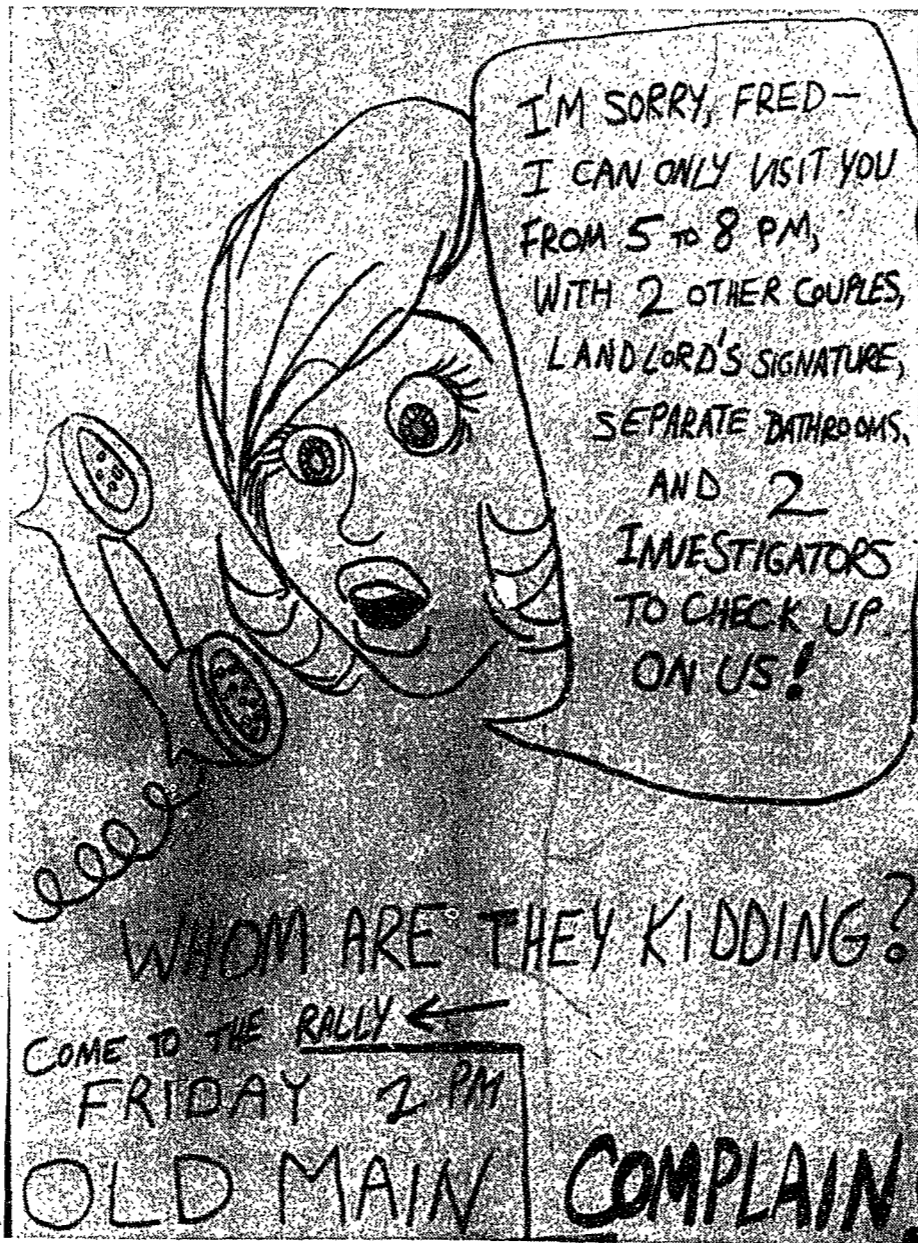 I'M SORRY, FRED—
I CAN ONLY VISIT YOU
FROM 5 TO 8 PM,
WITH 2 OTHER COUPLES,
LANDLORD'S SIGNATURE,
SEPARATE BATHROOMS,
AND 2
INVESTIGATORS
TO CHECK UP
ON US!
WHOM ARE THEY KIDDING?
COME TO THE RALLY ←
FRIDAY 2 PM
OLD MAIN
COMPLAIN.